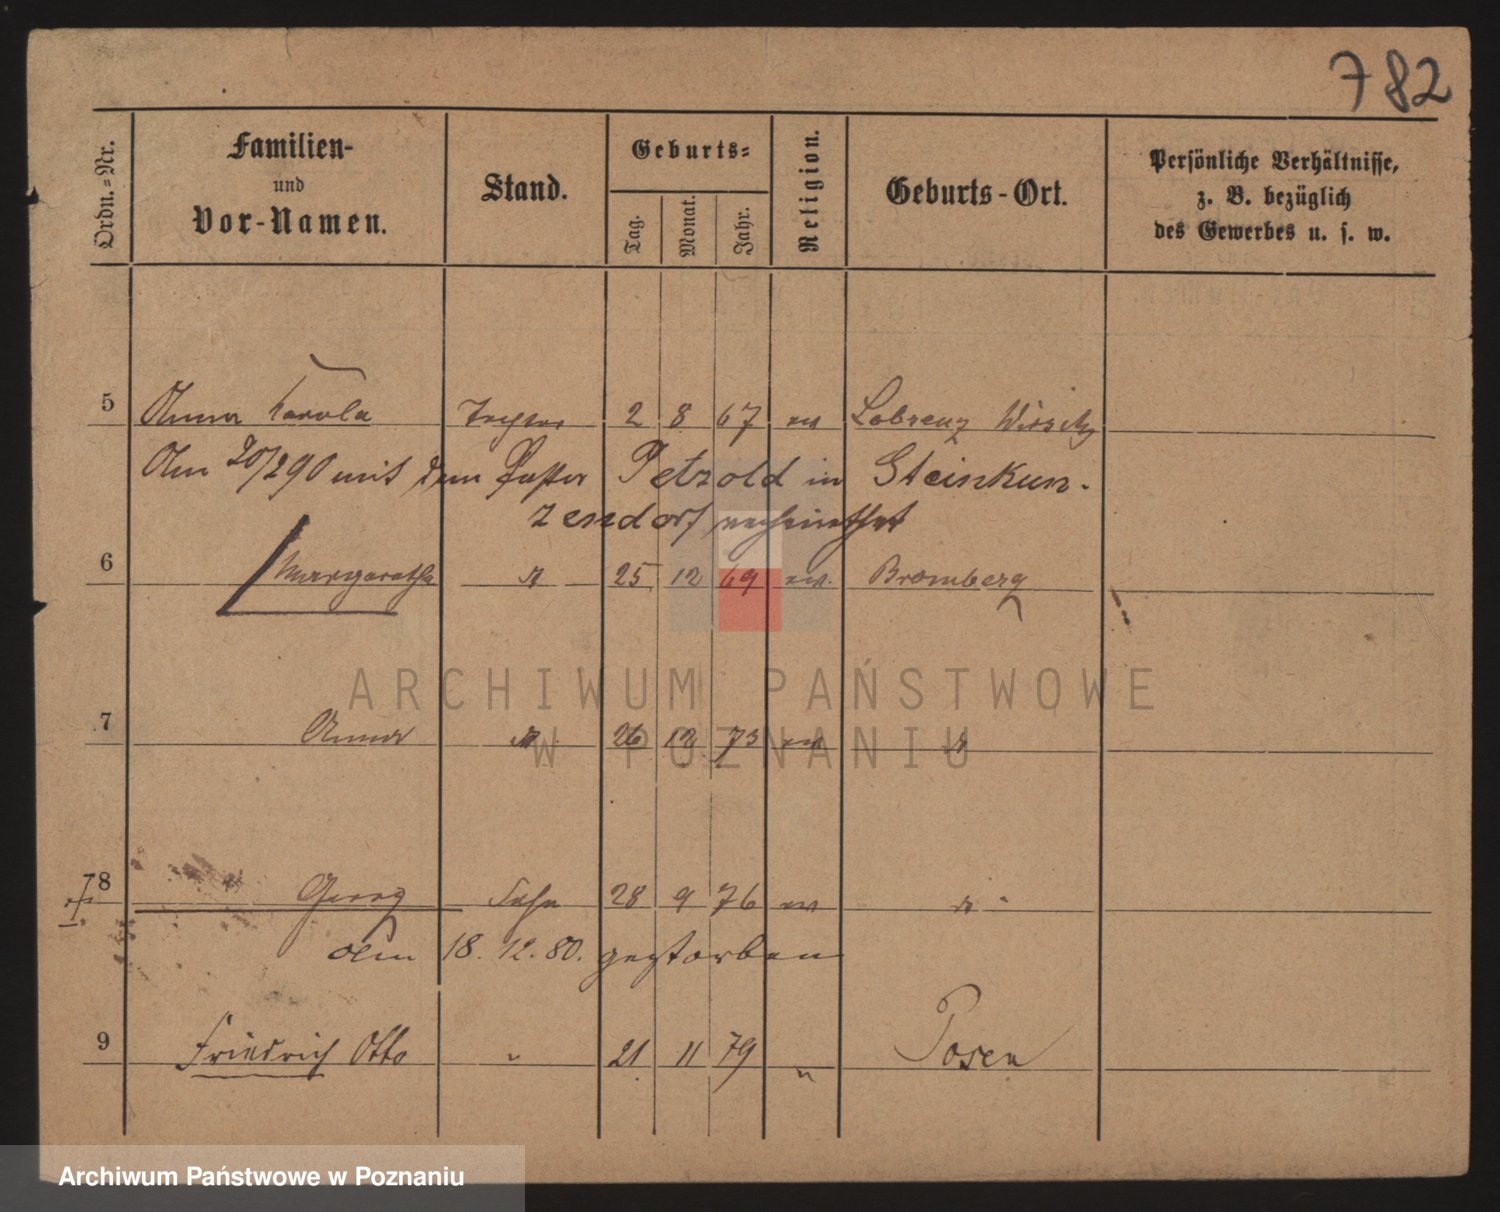 782
Ordn.=Nr.
Familien- und Vor-Namen.
Stand.
Geburts=
Tag. Monat. Jahr.
Religion.
Geburts-Ort.
Persönliche Verhältnisse, z. B. bezüglich des Gewerbes u. s. w.
5 Anna Karola Tochter 2 8 67 ev Lobsenz Wirsitz
Am 20/2 90 mit dem Pastor Petzold in Steinkun-
zendorf verheirathet
6 Margarethe 25 12 69 ev. Bromberg
7 Anna 26 12 73 ev
8 Georg Sohn 28 9 76 ev
am 18. 12. 80. gestorben
9 Friedrich Otto " 21 11 79 " Posen
ARCHIWUM PAŃSTWOWE
W POZNANIU
Archiwum Państwowe w Poznaniu